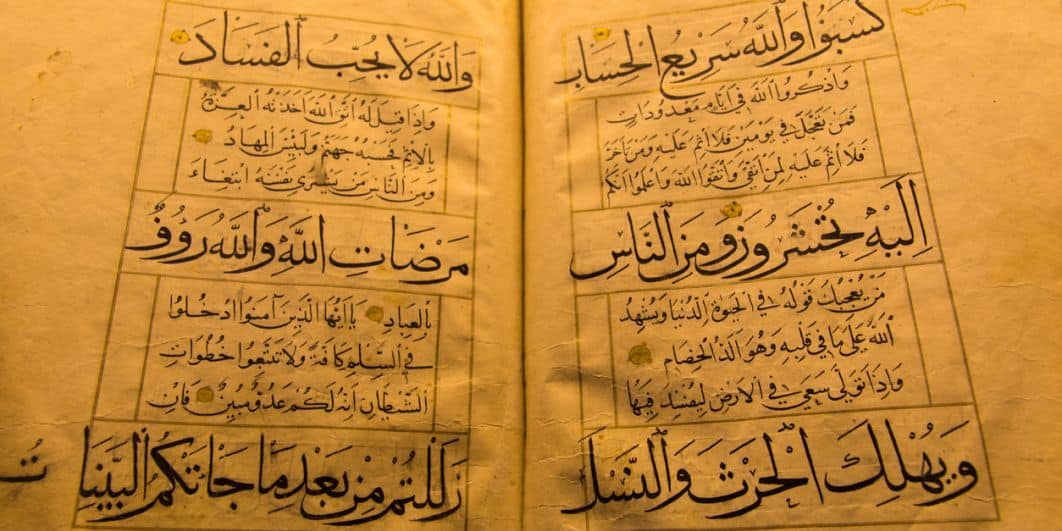 كَسَبُوا وَاللّٰهُ سَرِيعُ الْحِسَابِ
وَاذْكُرُوا اللّٰهَ فِي اَيَّامٍ مَعْدُودَاتٍ
فَمَنْ تَعَجَّلَ فِي يَوْمَيْنِ فَلَا اِثْمَ عَلَيْهِ وَمَنْ تَاَخَّرَ
فَلَا اِثْمَ عَلَيْهِ لِمَنِ اتَّقٰى وَاتَّقُوا اللّٰهَ وَاعْلَمُوا اَنَّكُمْ
اِلَيْهِ تُحْشَرُونَ وَمِنَ النَّاسِ
مَنْ يُعْجِبُكَ قَوْلُهُ فِي الْحَيٰوةِ الدُّنْيَا وَيُشْهِدُ
اللّٰهَ عَلٰى مَا فِي قَلْبِهِ وَهُوَ اَلَدُّ الْخِصَامِ
وَاِذَا تَوَلّٰى سَعٰى فِي الْاَرْضِ لِيُفْسِدَ فِيهَا
وَيُهْلِكَ الْحَرْثَ وَالنَّسْلَ
وَاللّٰهُ لَا يُحِبُّ الْفَسَادَ
وَاِذَا قِيلَ لَهُ اتَّقِ اللّٰهَ اَخَذَتْهُ الْعِزَّةُ
بِالْاِثْمِ فَحَسْبُهُ جَهَنَّمُ وَلَبِئْسَ الْمِهَادُ
وَمِنَ النَّاسِ مَنْ يَشْرِي نَفْسَهُ ابْتِغَاءَ
مَرْضَاتِ اللّٰهِ وَاللّٰهُ رَؤُوفٌ
بِالْعِبَادِ يَا اَيُّهَا الَّذِينَ آمَنُوا ادْخُلُوا
فِي السِّلْمِ كَافَّةً وَلَا تَتَّبِعُوا خُطُوَاتِ
الشَّيْطَانِ اِنَّهُ لَكُمْ عَدُوٌّ مُبِينٌ فَاِنْ
زَلَلْتُمْ مِنْ بَعْدِ مَا جَاتْكُمُ الْبَيِّنَاتُ